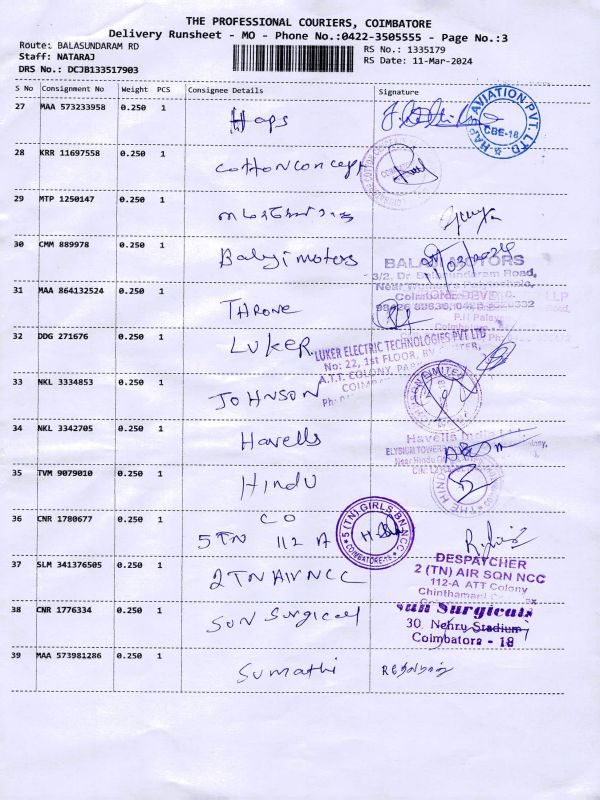 THE PROFESSIONAL COURIERS, COIMBATORE
Delivery Runsheet - MO - Phone No.:0422-3505555 - Page No.:3
Route: BALASUNDARAM RD
RS No.: 1335179
Staff: NATARAJ
RS Date: 11-Mar-2024
DRS No.: DCJB133517903
S No Consignment No Weight PCS Consignee Details Signature
27 MAA 573233958 0.250 1 Haps
HAP AVIATION PVT. LTD
CBE-18
28 KRR 11697558 0.250 1 Cotton concept
29 MTP 1250147 0.250 1
30 CMM 889978 0.250 1 Balaji motors
BALAJI MOTORS
3/2, Dr. Balasundaram Road,
31 MAA 864132524 0.250 1 THRONE
32 DDG 271676 0.250 1 LUKER
LUKER ELECTRIC TECHNOLOGIES PVT LTD
No: 22, 1st FLOOR,
A.T.T. COLONY,
33 NKL 3334853 0.250 1 JOHNSON
34 NKL 3342705 0.250 1 Havells
Havells India Ltd
35 TVM 9079010 0.250 1 HINDU
THE HINDU
36 CNR 1780677 0.250 1 CO
5 TN 112 A
5 (TN) GIRLS BN NCC
COIMBATORE-18
37 SLM 341376505 0.250 1 2TN AIR NCC
DESPATCHER
2 (TN) AIR SQN NCC
112-A ATT Colony
Chinthamani
38 CNR 1776334 0.250 1 SUN Surgical
Sun Surgicals
30, Nehru Stadium
Coimbatore - 18
39 MAA 573981286 0.250 1 Sumathi